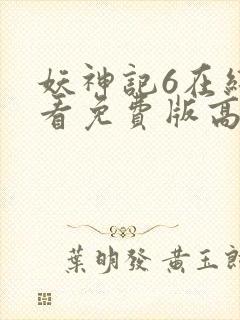 妖神記6在
看免費版高
葉明發 黃玉郎